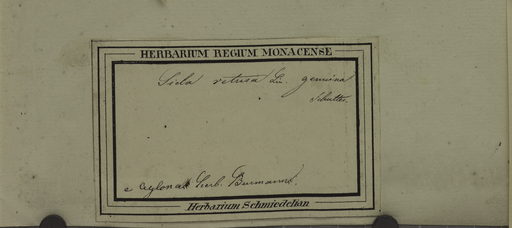 HERBARIUM REGIUM MONACENSE
Sida retusa Lin. genuina
Schultes
e Ceylona Herb. Burmanni.
Herbarium Schmiedelian